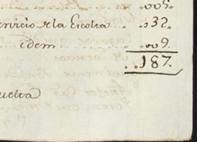 ..005.
ervicio de la Escolta ..32.
idem ...009.
..187.
uelta